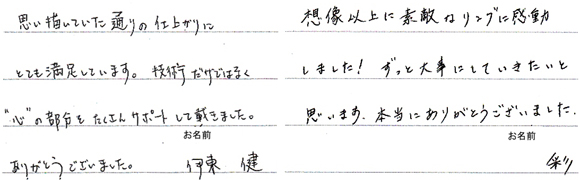 思い描いていた通りの仕上がりに
とても満足しています。技術だけではなく
"心"の部分をたくさんサポートして戴きました。
お名前
ありがとうございました。 伊東 健
想像以上に素敵なリングに感動
しました！ずっと大事にしていきたいと
思います。本当にありがとうございました。
お名前
彩